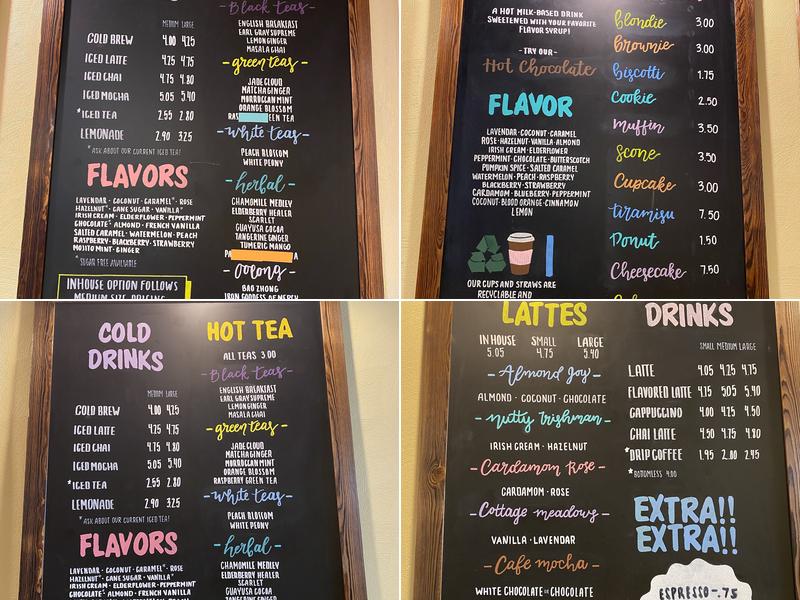 Black teas-
MEDIUM LARGE
COLD BREW 4.00 4.25
ICED LATTE 4.25 4.75
ICED CHAI 4.75 4.80
ICED MOCHA 5.05 5.40
*ICED TEA 2.55 2.80
LEMONADE 2.90 3.25
*ASK ABOUT OUR CURRENT ICED TEA!
FLAVORS
LAVENDAR · COCONUT · CARAMEL* · ROSE
HAZELNUT* · CANE SUGAR · VANILLA*
IRISH CREAM · ELDERFLOWER · PEPPERMINT
CHOCOLATE* ALMOND · FRENCH VANILLA
SALTED CARAMEL · WATERMELON · PEACH
RASPBERRY · BLACKBERRY · STRAWBERRY
MOJITO MINT · GINGER
*SUGAR FREE AVAILABLE
INHOUSE OPTION FOLLOWS
MEDIUM SIZE PRICING
ENGLISH BREAKFAST
EARL GRAY SUPREME
LEMON GINGER
MASALA CHAI
-green teas-
JADE CLOUD
MATCHA GINGER
MORROCAN MINT
ORANGE BLOSSOM
RAS EEN TEA
-White teas-
PEACH BLOSSOM
WHITE PEONY
-herbal-
CHAMOMILE MEDLEY
ELDERBERRY HEALER
SCARLET
GUAYUSA COCOA
TANGERINE GINGER
TUMERIC MANGO
PA A
-Oolong-
BAO ZHONG
IRON GODDESS OF MERCY
A HOT MILK-BASED DRINK
SWEETENED WITH YOUR FAVORITE
FLAVOR SYRUP!
-TRY OUR-
Hot Chocolate
FLAVOR
LAVENDAR · COCONUT · CARAMEL
ROSE · HAZELNUT · VANILLA · ALMOND
IRISH CREAM · ELDERFLOWER
PEPPERMINT · CHOCOLATE · BUTTERSCOTCH
PUMPKIN SPICE · SALTED CARAMEL
WATERMELON · PEACH · RASPBERRY
BLACKBERRY · STRAWBERRY
CARDAMOM · BLUEBERRY · PEPPERMINT
COCONUT · BLOOD ORANGE · CINNAMON
LEMON
OUR CUPS AND STRAWS ARE
RECYCLABLE AND
blondie 3.00
Brownie 3.00
biscotti 1.75
Cookie 2.50
Muffin 3.50
Scone 3.50
Cupcake 3.00
tiramisu 7.50
Donut 1.50
Cheesecake 7.50
COLD
DRINKS
MEDIUM LARGE
COLD BREW 4.00 4.25
ICED LATTE 4.25 4.75
ICED CHAI 4.75 4.80
ICED MOCHA 5.05 5.40
*ICED TEA 2.55 2.80
LEMONADE 2.90 3.25
*ASK ABOUT OUR CURRENT ICED TEA!
FLAVORS
LAVENDAR · COCONUT · CARAMEL* · ROSE
HAZELNUT* · CANE SUGAR · VANILLA*
IRISH CREAM · ELDERFLOWER · PEPPERMINT
CHOCOLATE* ALMOND · FRENCH VANILLA
HOT TEA
ALL TEAS 3.00
-Black teas-
ENGLISH BREAKFAST
EARL GRAY SUPREME
LEMON GINGER
MASALA CHAI
-green teas-
JADE CLOUD
MATCHA GINGER
MORROCAN MINT
ORANGE BLOSSOM
RASPBERRY GREEN TEA
-White teas-
PEACH BLOSSOM
WHITE PEONY
-herbal-
CHAMOMILE MEDLEY
ELDERBERRY HEALER
SCARLET
GUAYUSA COCOA
TANGERINE GINGER
LATTES
IN HOUSE SMALL LARGE
5.05 4.75 5.40
-Almond Joy-
ALMOND · COCONUT · CHOCOLATE
-Nutty Irishman-
IRISH CREAM · HAZELNUT
-Cardamom Rose-
CARDAMOM · ROSE
-Cottage meadows-
VANILLA · LAVENDAR
-Cafe mocha-
WHITE CHOCOLATE OR CHOCOLATE
DRINKS
SMALL MEDIUM LARGE
LATTE 4.05 4.25 4.75
FLAVORED LATTE 4.75 5.05 5.40
CAPPUCCINO 4.00 4.25 4.50
CHAI LATTE 4.50 4.75 4.80
*DRIP COFFEE 1.95 2.20 2.45
*BOTTOMLESS 4.00
EXTRA!!
EXTRA!!
ESPRESSO-.75